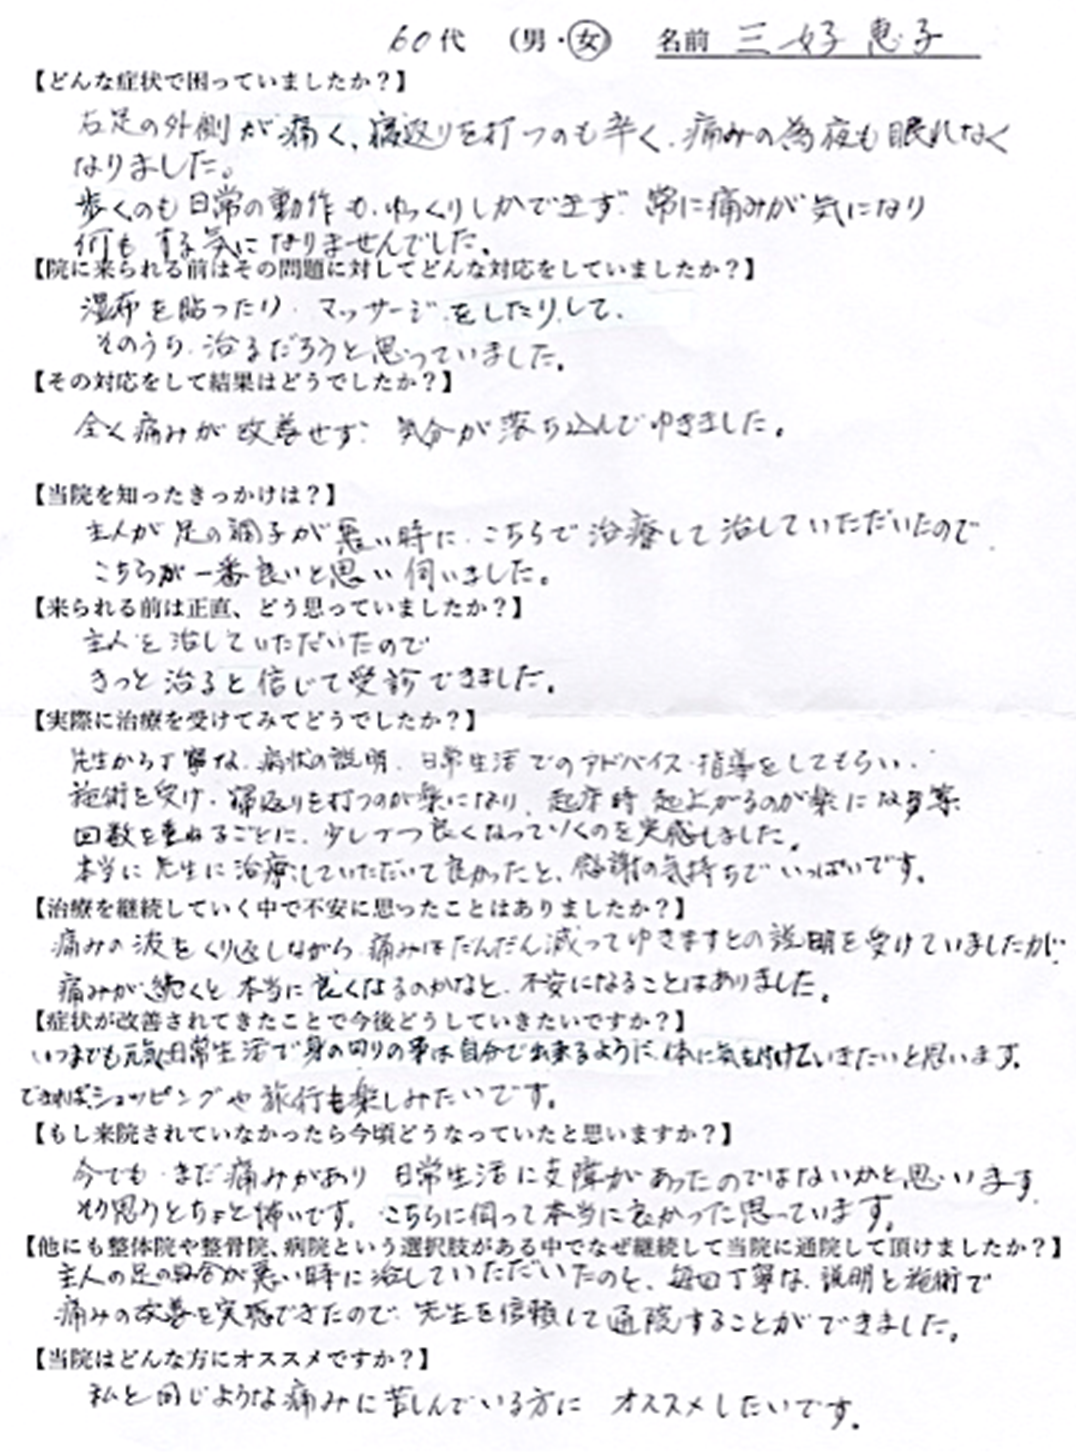 60代 (男・女) 名前 三好恵子
【どんな症状で困っていましたか?】
右足の外側が痛く、寝返りを打つのも辛く、痛みの為夜も眠れなく
なりました。
歩くのも日常の動作も、ゆっくりしかできず、常に痛みが気になり
何もする気になりませんでした。
【院に来られる前はその問題に対してどんな対応をしていましたか?】
湿布を貼ったり、マッサージをしたりして、
そのうち、治るだろうと思っていました。
【その対応をして結果はどうでしたか?】
全く痛みが改善せず、気分が落ち込んでゆきました。
【当院を知ったきっかけは?】
主人が足の調子が悪い時に、こちらで治療して治していただいたので、
こちらが一番良いと思い伺いました。
【来られる前は正直、どう思っていましたか?】
主人を治していただいたので
きっと治ると信じて受診できました。
【実際に治療を受けてみてどうでしたか?】
先生から丁寧な、病状の説明、日常生活でのアドバイス・指導をしてもらい、
施術を受け、寝返りを打つのが楽になり、起床時起上がるのが楽になる等
回数を重ねるごとに、少しづつ良くなっていくのを実感しました。
本当に先生に治療していただいて良かったと、感謝の気持ちでいっぱいです。
【治療を継続していく中で不安に思ったことはありましたか?】
痛みの波をくり返しながら、痛みはだんだん減ってゆきますとの説明を受けていましたが、
痛みが続くと本当に良くなるのかなと、不安になることはありました。
【症状が改善されてきたことで今後どうしていきたいですか?】
いつまでも元気に日常生活で身の回りの事は自分で出来るように、体に気を付けていきたいと思います。
できれば、ショッピングや旅行も楽しみたいです。
【もし来院されていなかったら今頃どうなっていたと思いますか?】
今でも、まだ痛みがあり 日常生活に支障があったのではないかと思います。
そう思うとちょと怖いです。こちらに伺って本当に良かった思っています。
【他にも整体院や整骨院、病院という選択肢がある中でなぜ継続して当院に通院して頂けましたか?】
主人の足の具合が悪い時に治していただいたのと、毎回丁寧な、説明と施術で
痛みの改善を実感できたので、先生を信頼して通院することができました。
【当院はどんな方にオススメですか?】
私と同じような痛みに苦しんでいる方に オススメしたいです。